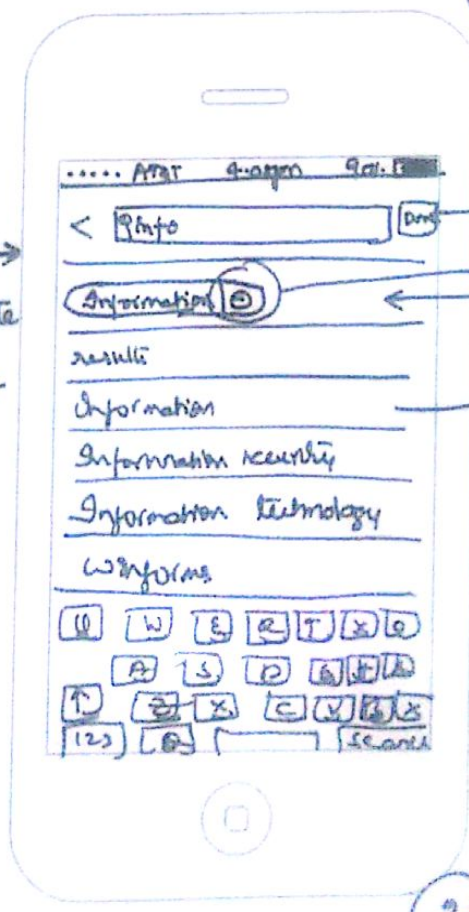 ..... AT&T
< info Done
Information
results
Information
Information security
Information technology
Winforms
W E R T
A S D
↑ Z X C V B
123 Search